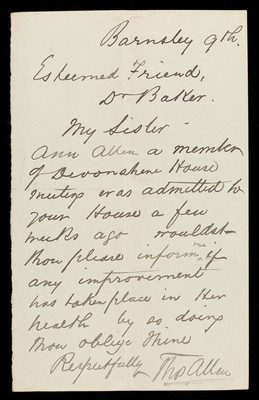 Barnsley 9th.
Esteemed Friend,
Dr Baker.
My Sister
Ann Allen a member
of Devonshire House
meeting was admitted to
your House a few
weeks ago wouldst
thou please inform me if
any improvement
has taken place in her
health by so doing
thou oblige thine
Respectfully Thos Allen